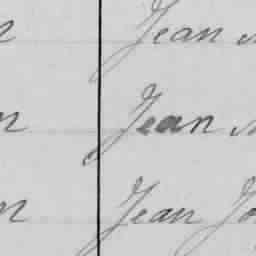 n Jean
n Jean
n Jean Jo